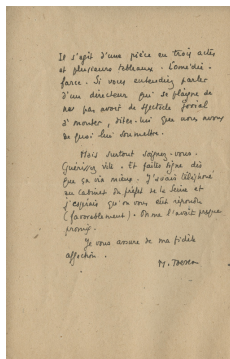 Il s'agit d'une pièce en trois actes
et plusieurs tableaux. Comédie-
farce. Si vous entendiez parler
d'un directeur qui se plaigne de
ne pas avoir de spectacle jovial
à monter, dites-lui que nous avons
de quoi lui soumettre.
Mais surtout soignez-vous.
Guérissez vite. Et faites signe dès
que ça va mieux. J'avais téléphoné
au Cabinet du préfet de la Seine et
j'espérais qu'on vous eût répondu
(favorablement). On me l'avait presque
promis.
Je vous assure de ma fidèle
affection.